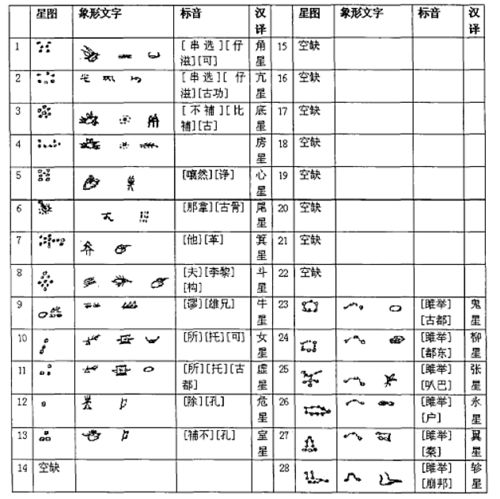 星图 象形文字 标音 汉译 星图 象形文字 标音 汉译
1 [串选][仔滋][可] 角星 15 空缺
2 [串选][仔滋][古功] 亢星 16 空缺
3 [不補][比補][古] 底星 17 空缺
4 房星 18 空缺
5 [嚷然][诤] 心星 19 空缺
6 [那拿][古骨] 尾星 20 空缺
7 [他][革] 箕星 21 空缺
8 [夫][李黎][构] 斗星 22 空缺
9 [谬][雄兄] 牛星 23 [雎举][古都] 鬼星
10 [所][托][可] 女星 24 [雎举][都东] 柳星
11 [所][托][古都] 虚星 25 [雎举][叭巴] 张星
12 [除][孔] 危星 26 [雎举][户] 永星
13 [補不][孔] 室星 27 [雎举][秦] 翼星
14 空缺 28 [雎举][崩邦] 轸星